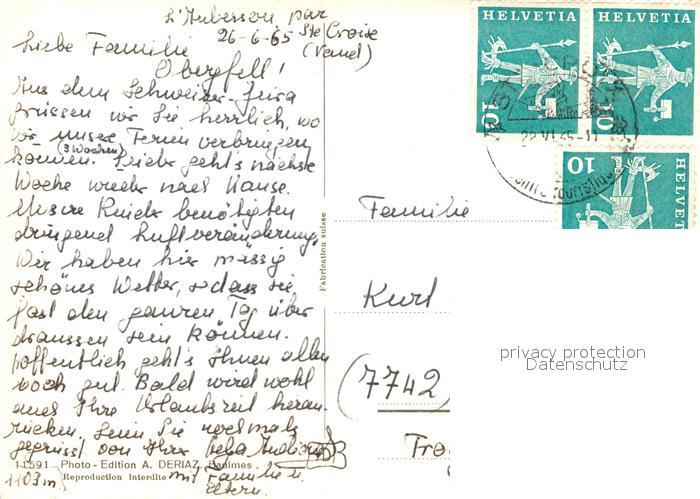 L'Auberson par
26-6-65 Ste/Croise
(Vaud)
Liebe Familie
Obergfell!
Aus dem Schweizer-Jura
grüssen wir Sie herrlich, wo
wir unsere Ferien verbringen
(3 Wochen)
können. Leider geht's nächste
Woche wieder nach Hause.
Unsere Kinder benötigten
dringend Luftveränderung.
Wir haben hier mässig
schönes Wetter, sodass sie
fast den ganzen Tag über
draussen sein können.
Hoffentlich geht's Ihnen allen
noch gut. Bald wird wohl
auch Ihre Urlaubszeit heran-
rücken. Seien Sie nochmals
gegrüsst von Ihrer
mit Familie u.
Eltern.
11591 Photo - Edition A. DERIAZ, Baulmes.
1103 m
Reproduction interdite
Fabrication suisse
HELVETIA
10
HELVETIA
10
HELVETIA
10
Familie
Kurt
(7742
privacy protection
Datenschutz